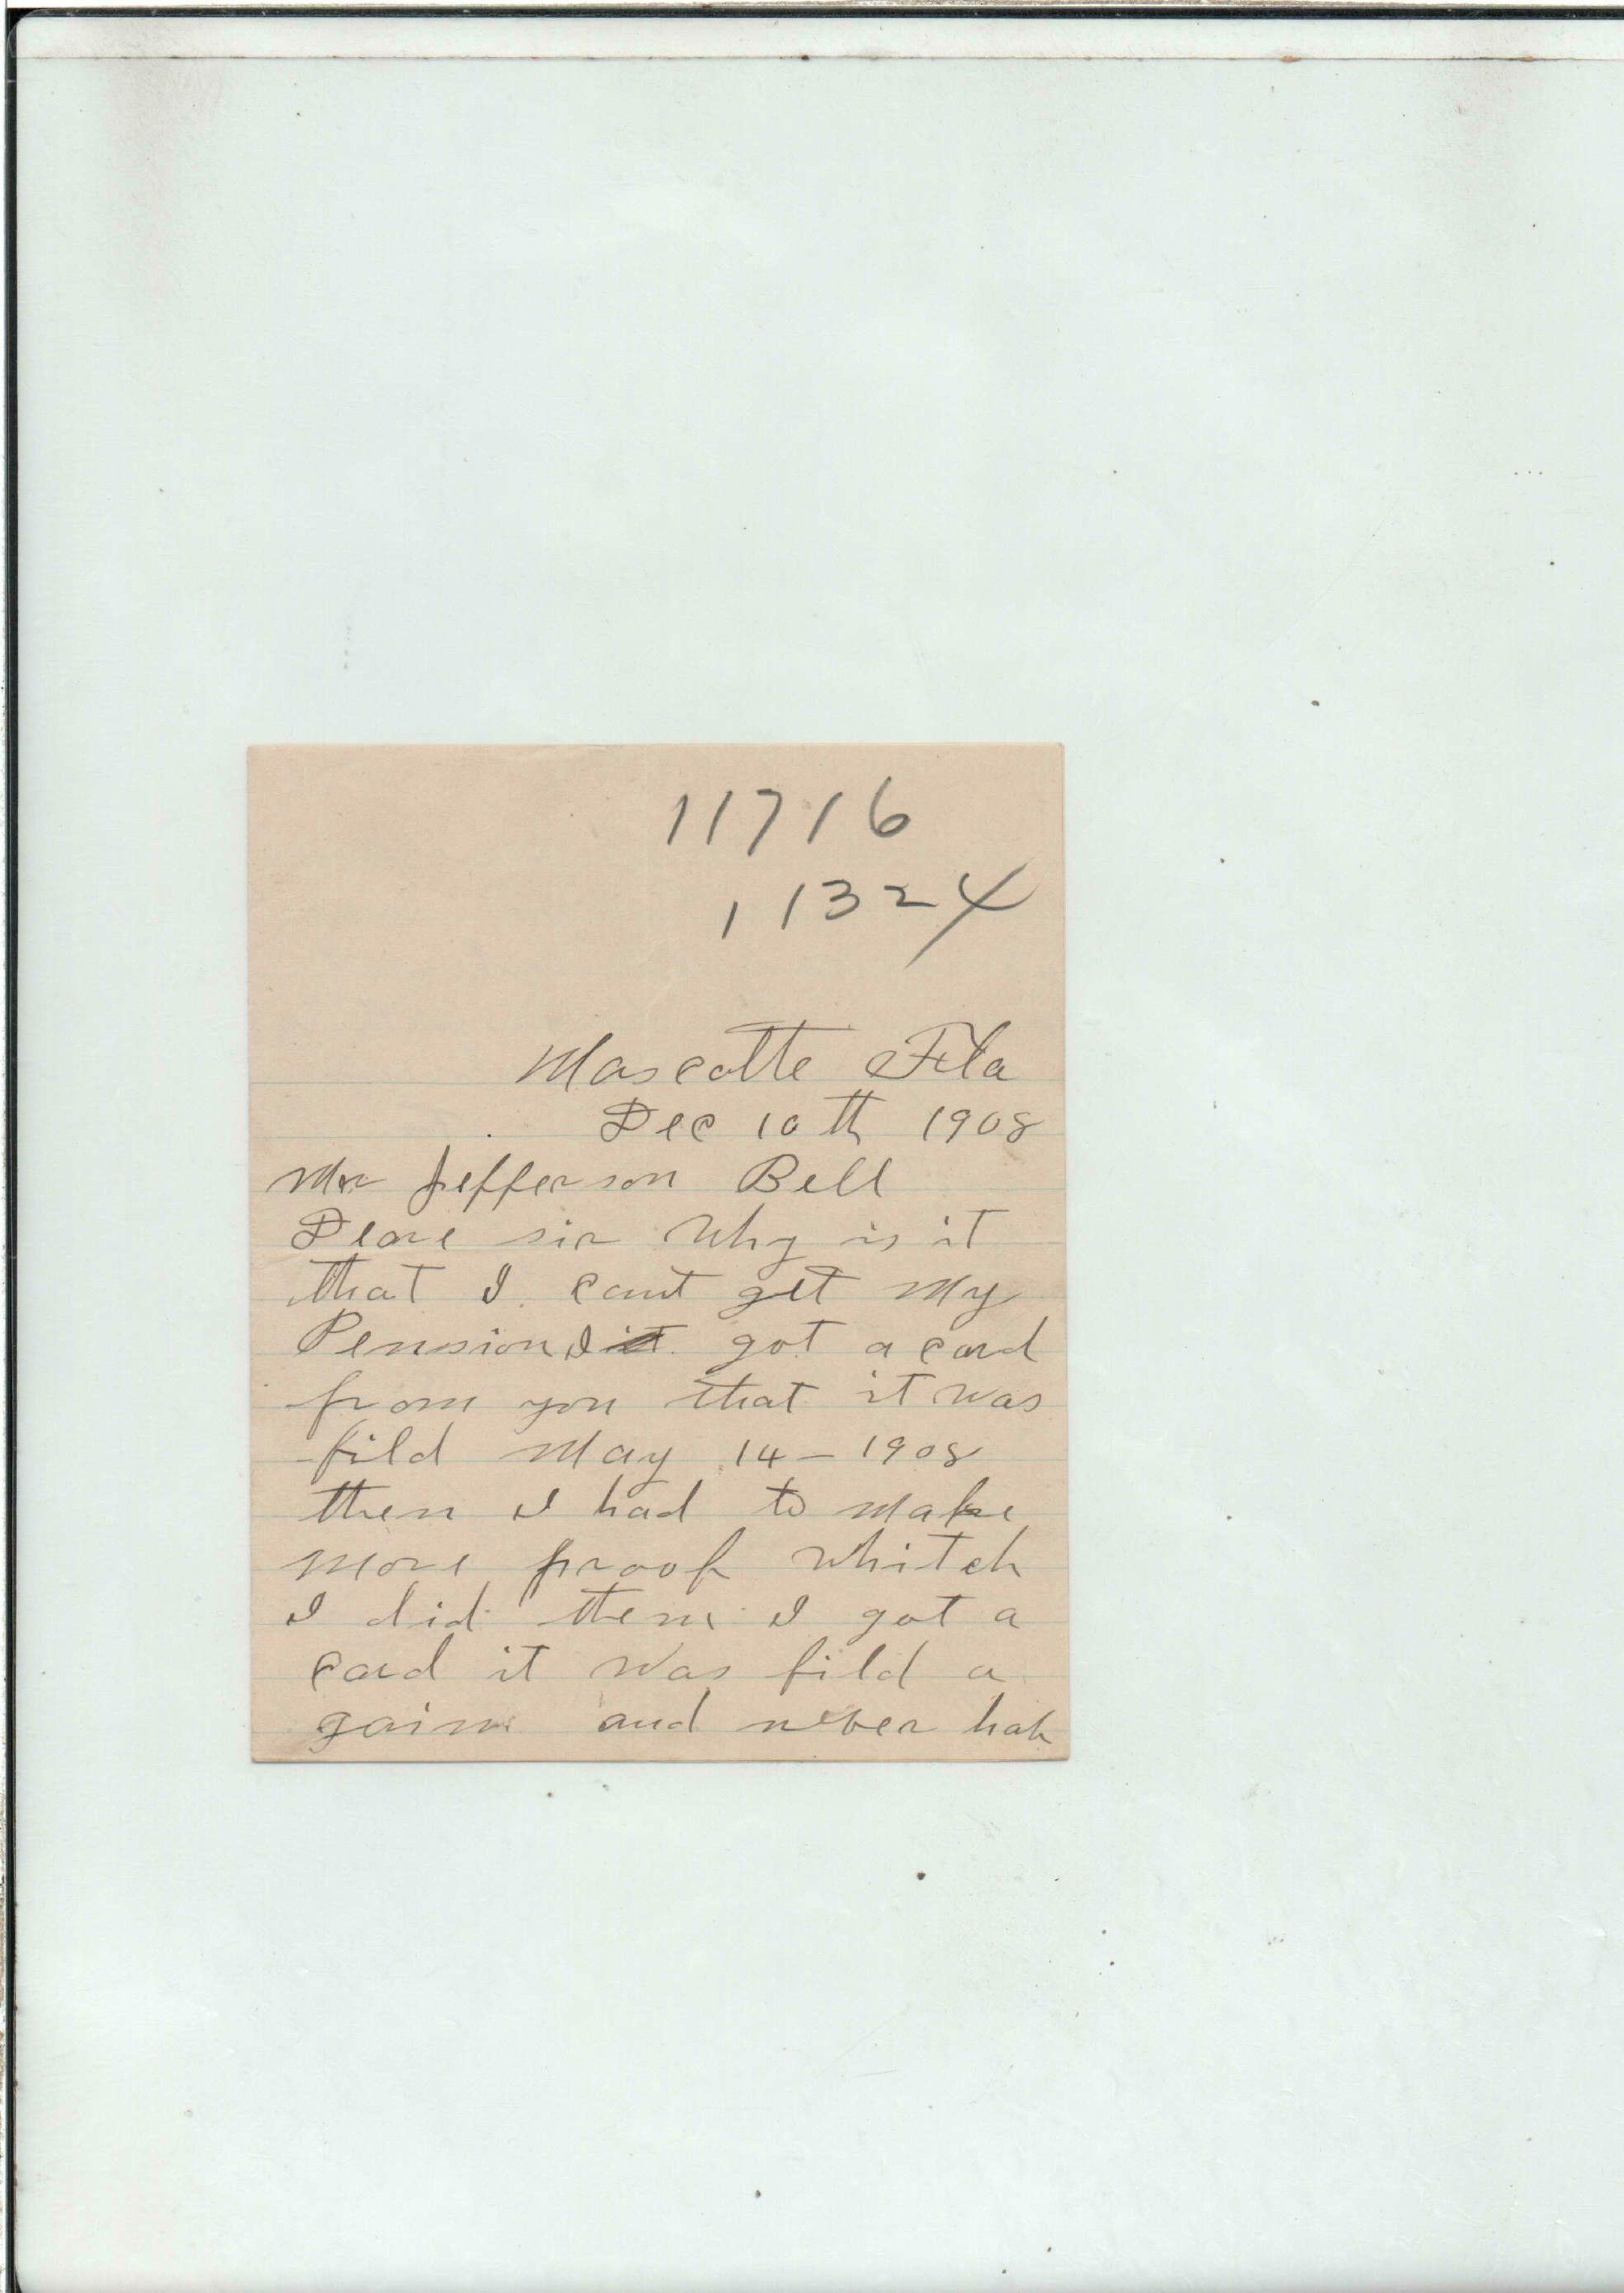 11716
11324
Mascotte Fla
Dec 10th 1908
Mr Jefferson Bell
Deare sir Why is it
that I cant get My
Pension I it got a card
from you that it was
fild May 14 - 1908
then I had to Make
More proof Whitch
I did then I got a
card it was fild a
gain and never hah